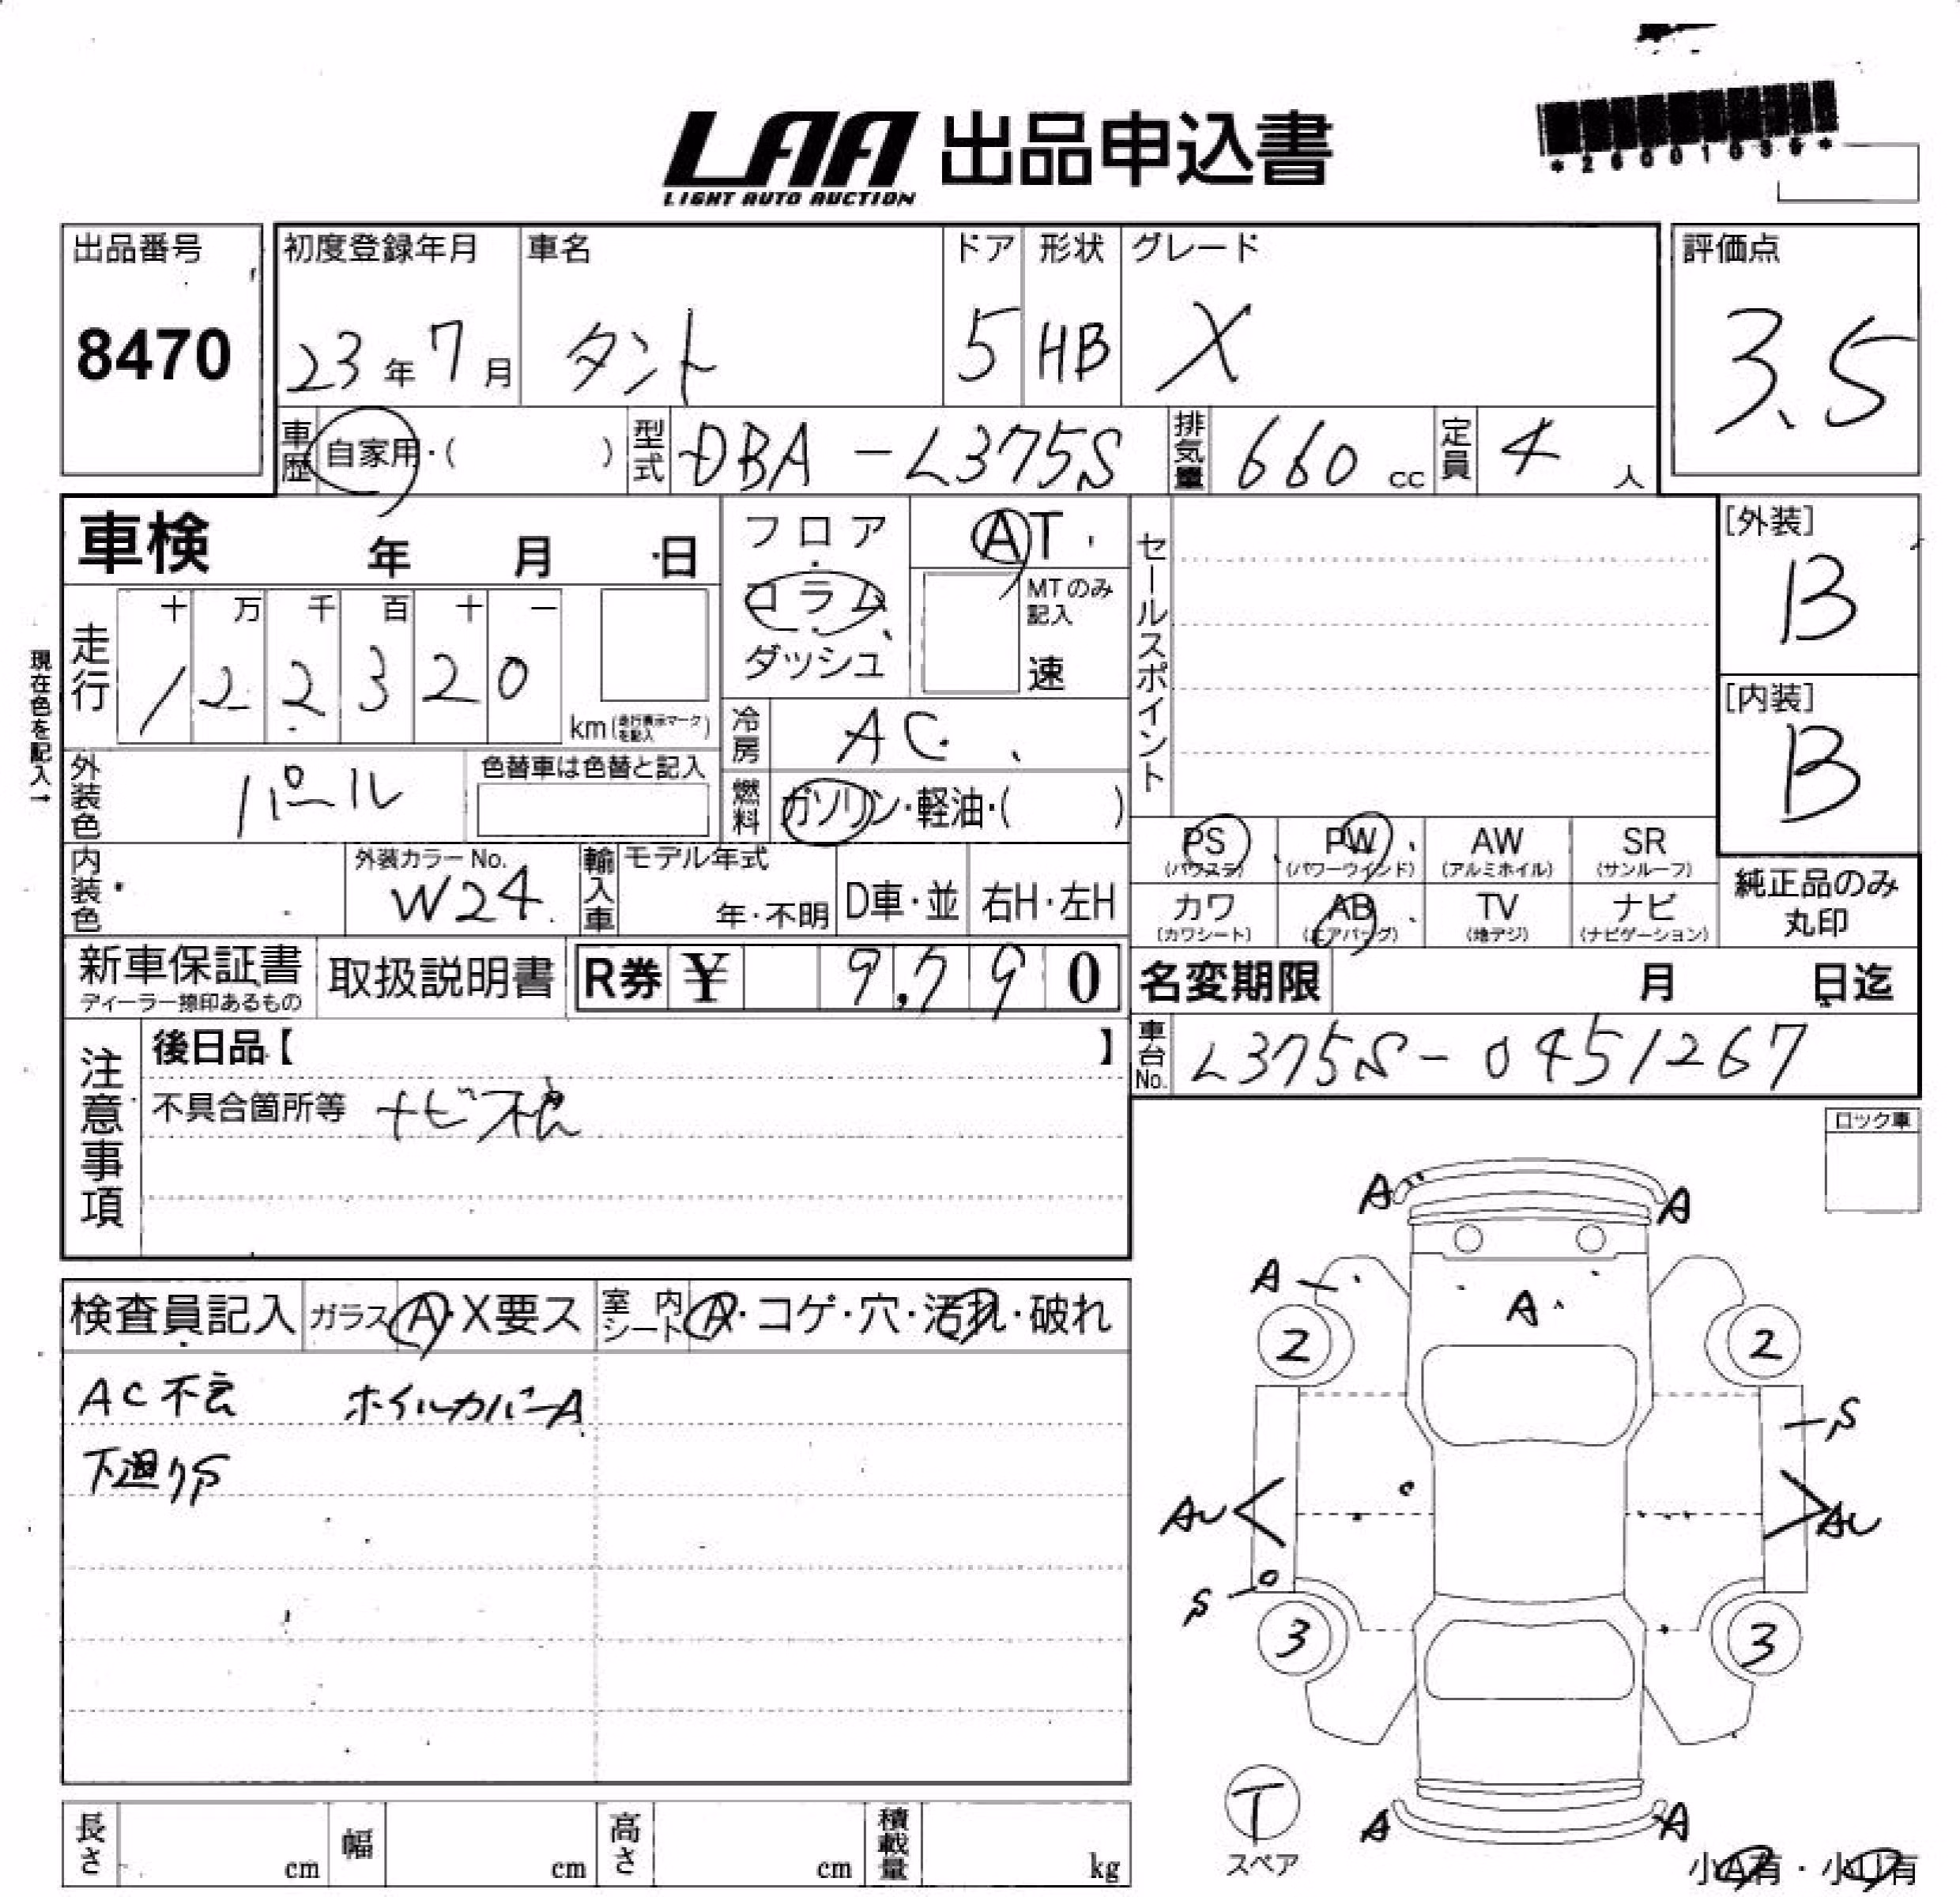 LAA 出品申込書
LIGHT AUTO AUCTION
*26001035*
出品番号
8470
初度登録年月
23年7月
車名
タント
ドア
5
形状
HB
グレード
X
評価点
3.5
車歴
自家用・( )
型式
DBA-L375S
排気量
660 cc
定員
4 人
車検 年 月 日
フロア
・
コラム
・
ダッシュ
AT
MTのみ記入
速
セールスポイント
[外装]
B
[内装]
B
現在色を記入→
走行
十 万 千 百 十 一
1 2 2 3 2 0
km(走行表示マークを記入)
冷房
AC
外装色
パール
色替車は色替と記入
燃料
ガソリン・軽油・( )
PS
(パワステ)
PW
(パワーウインド)
AW
(アルミホイル)
SR
(サンルーフ)
カワ
(カワシート)
AB
(エアバッグ)
TV
(地デジ)
ナビ
(ナビゲーション)
純正品のみ
丸印
内装色
外装カラーNo.
W24
輸入車
モデル年式
年・不明
D車・並
右H・左H
新車保証書
ディーラー捺印あるもの
取扱説明書
R券 ¥ 9,790
名変期限 月 日迄
車台No.
L375S-0451267
注意事項
後日品【 】
不具合箇所等 ナビ不良
ロック車
検査員記入
ガラス A・X要ス
室内シート A・コゲ・穴・汚れ・破れ
AC不良 ホイルカバーA
下廻りS
A
A
A
A
2
2
S
AU
AU
S
3
3
T
スペア
A
A
小A有・小U有
長さ cm
幅 cm
高さ cm
積載量 kg